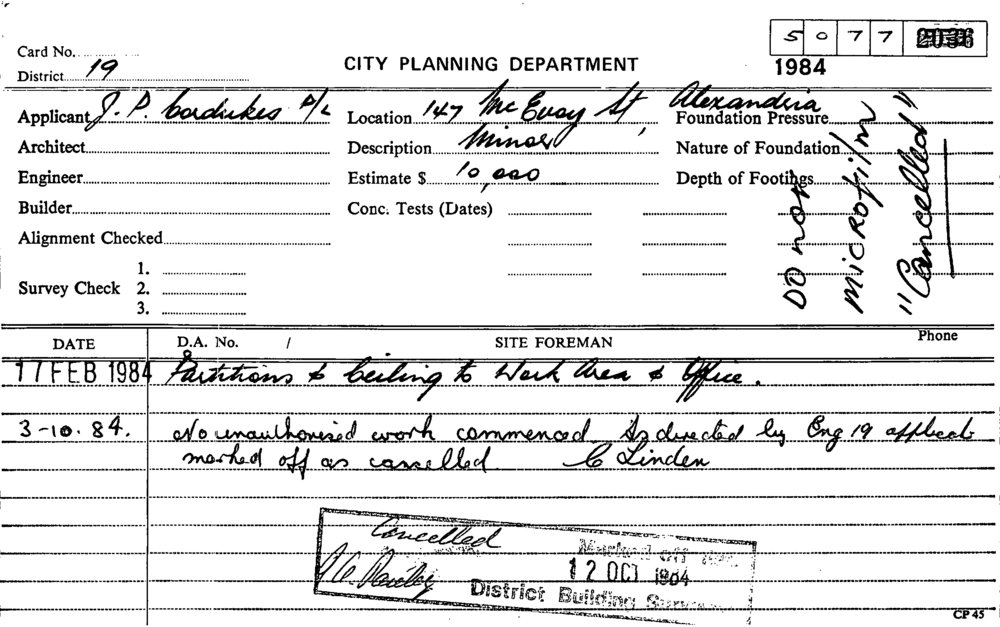 5 0 7 7
Card No.
CITY PLANNING DEPARTMENT
1984
District 19
Applicant J. P. P/L Location 147 McEvoy St, Alexandria
Foundation Pressure
Architect Description Minor Nature of Foundation
Engineer Estimate $ 10,000 Depth of Footings
Builder Conc. Tests (Dates)
Alignment Checked
Survey Check 1.
2.
3.
Do not
microfilm
"Cancelled"
DATE D.A. No. / SITE FOREMAN Phone
17 FEB 1984 Partitions & Ceiling to Work Area & Office.
3-10.84. No unauthorised work commenced As directed by Eng 19 applicat
marked off as cancelled C Linden
Cancelled
Marked off
12 OCT 1984
District Building
CP 45